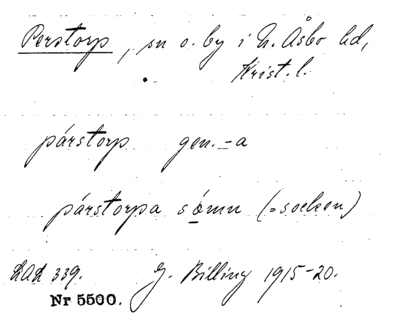 Perstorp, sn o. by i N. Åsbo hd,
Krist. l.
párstorp gen. -a
párstorpa sómn (= socken)
LAL 339. G. Billing 1915-20.
Nr 5500.